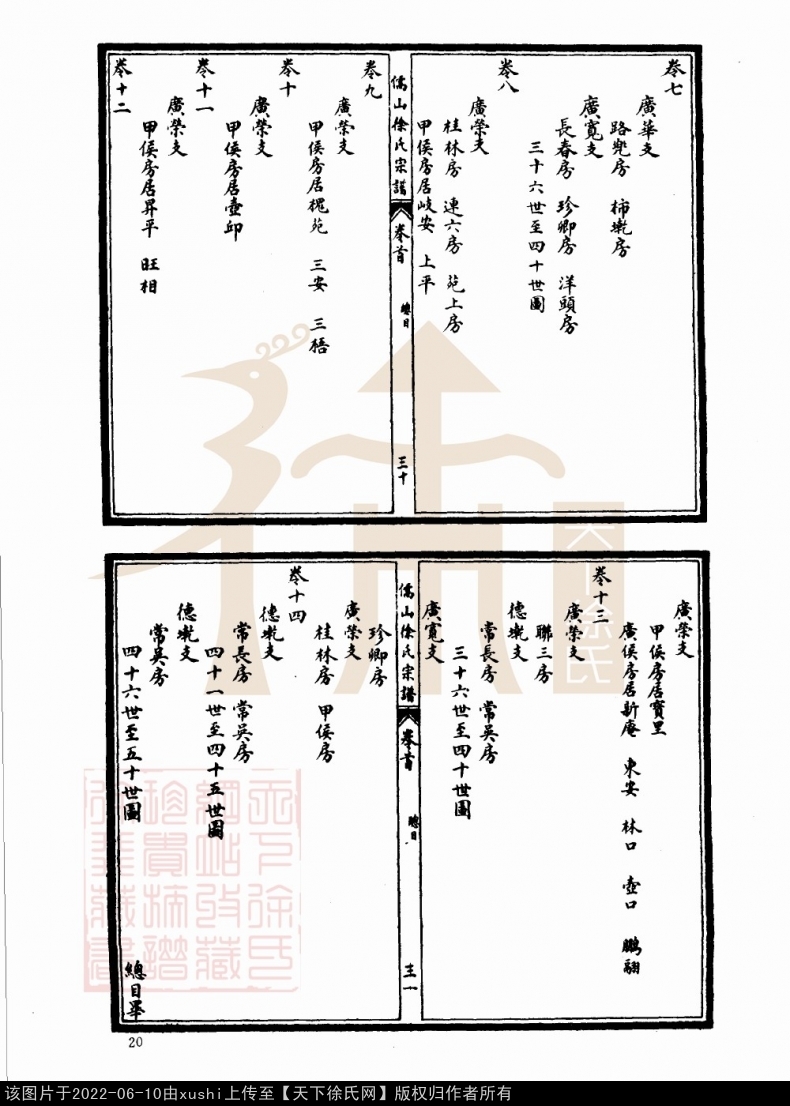 卷七
廣華支
路兜房 柿墘房
廣寬支
長春房 珍卿房 洋頭房
三十六世至四十世圖
卷八
廣榮支
桂林房 連六房 苑上房
甲侯房居岐安 上平
儒山徐氏宗譜 卷首 總目 三十
卷九
廣榮支
甲侯房居槐苑 三安 三梧
卷十
廣榮支
甲侯房居壺邱
卷十一
廣榮支
甲侯房居昇平 旺相
卷十二
廣榮支
甲侯房居寶里
卷十三
廣侯房居新庵 東安 林口 壺口 鵬翮
廣榮支
聯三房
德墘支
常長房 常吳房
三十六世至四十世圖
廣寬支
儒山徐氏宗譜 卷首 總目 三十一
珍卿房
廣榮支
桂林房 甲侯房
卷十四
德墘支
常長房 常吳房
四十一世至四十五世圖
德墘支
常吳房
四十六世至五十世圖
總目畢
20
天下徐氏
天下徐氏
網站收藏
珍貴族譜
该图片于2022-06-10由xushi上传至【天下徐氏网】版权归作者所有